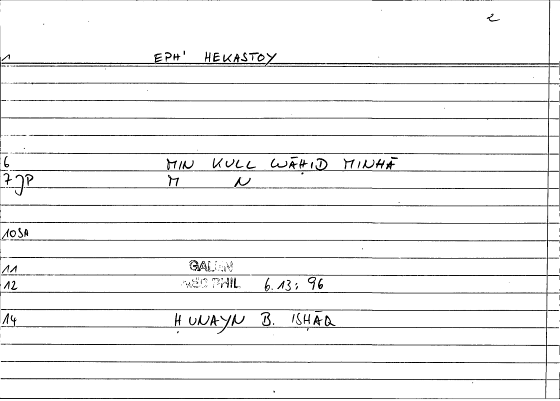 2
1 EPH' HEKASTOY
6 MIN KULL WĀḤID MINHĀ
7 JP M N
10 SA
11 GALEN
12 PHIL 6.13: 96
14 ḤUNAYN B. ISḤĀQ